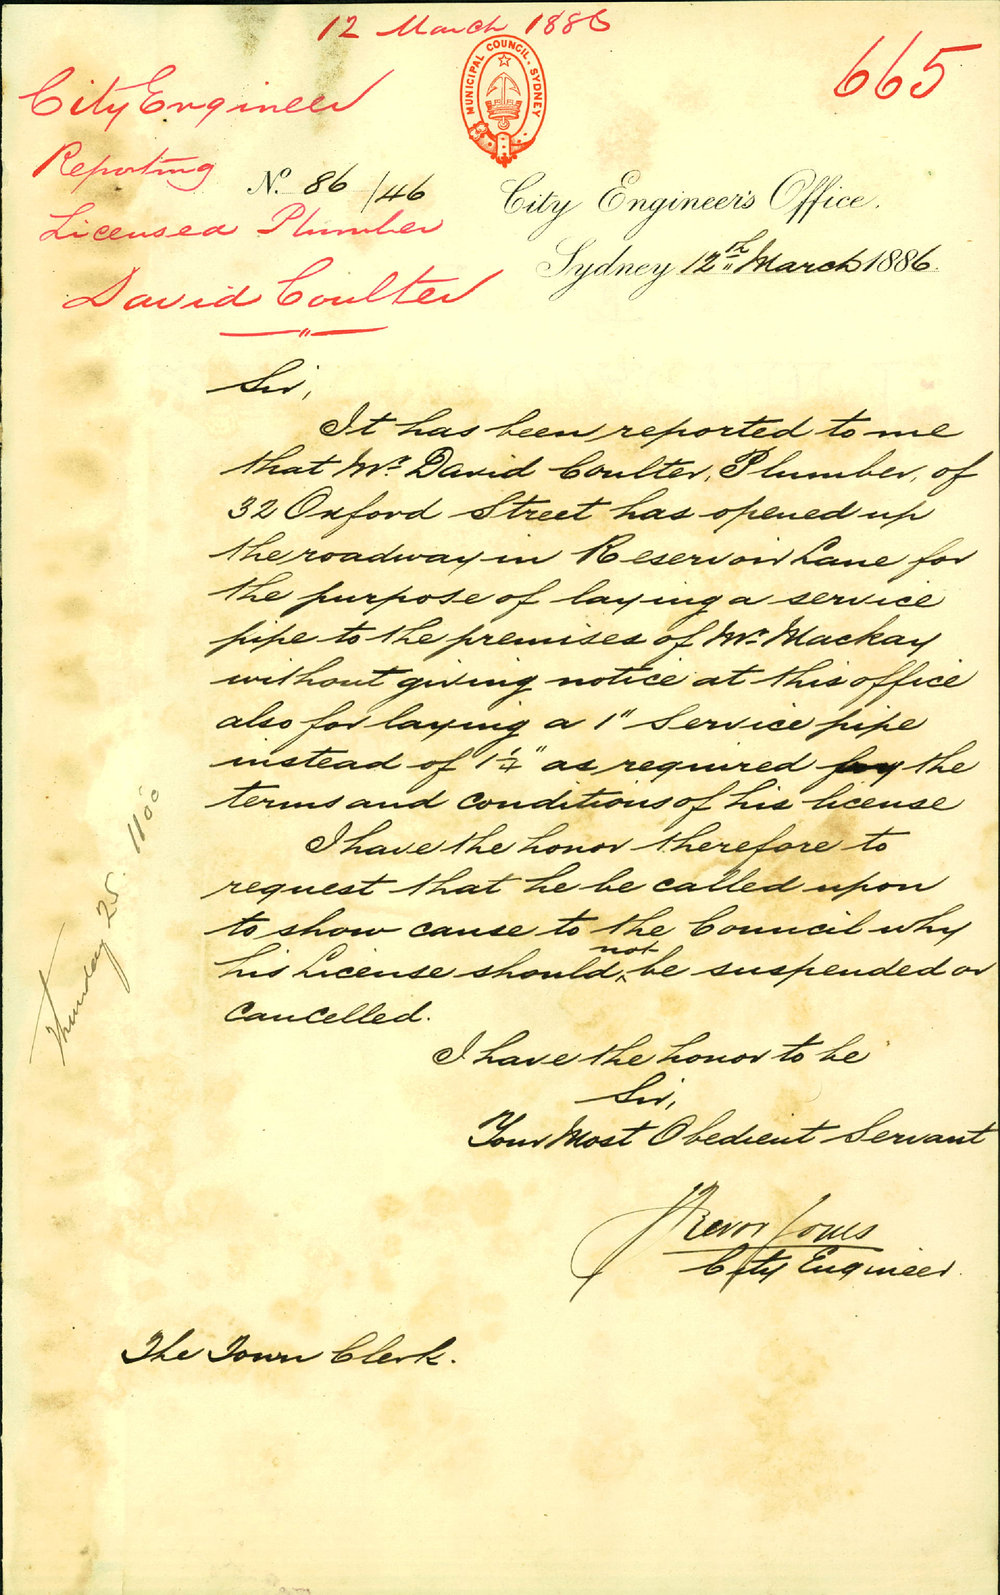 12 March 1886
665
MUNICIPAL COUNCIL. SYDNEY
City Engineer
Reporting
Licensed Plumber
David Coulter
No. 86/46
City Engineer's Office.
Sydney 12th March 1886.
Sir,
It has been reported to me
that Mr. David Coulter, Plumber, of
32 Oxford Street has opened up
the roadway in Reservoir Lane for
the purpose of laying a service
pipe to the premises of Mr. Mackay
without giving notice at this office
also for laying a 1" service pipe
instead of 1¼" as required by the
terms and conditions of his license
I have the honor therefore to
request that he be called upon
to show cause to the Council why
his License should not be suspended or
cancelled.
I have the honor to be
Sir,
Your Most Obedient Servant
Trevor Jones
City Engineer.
The Town Clerk.
Thursday 25.